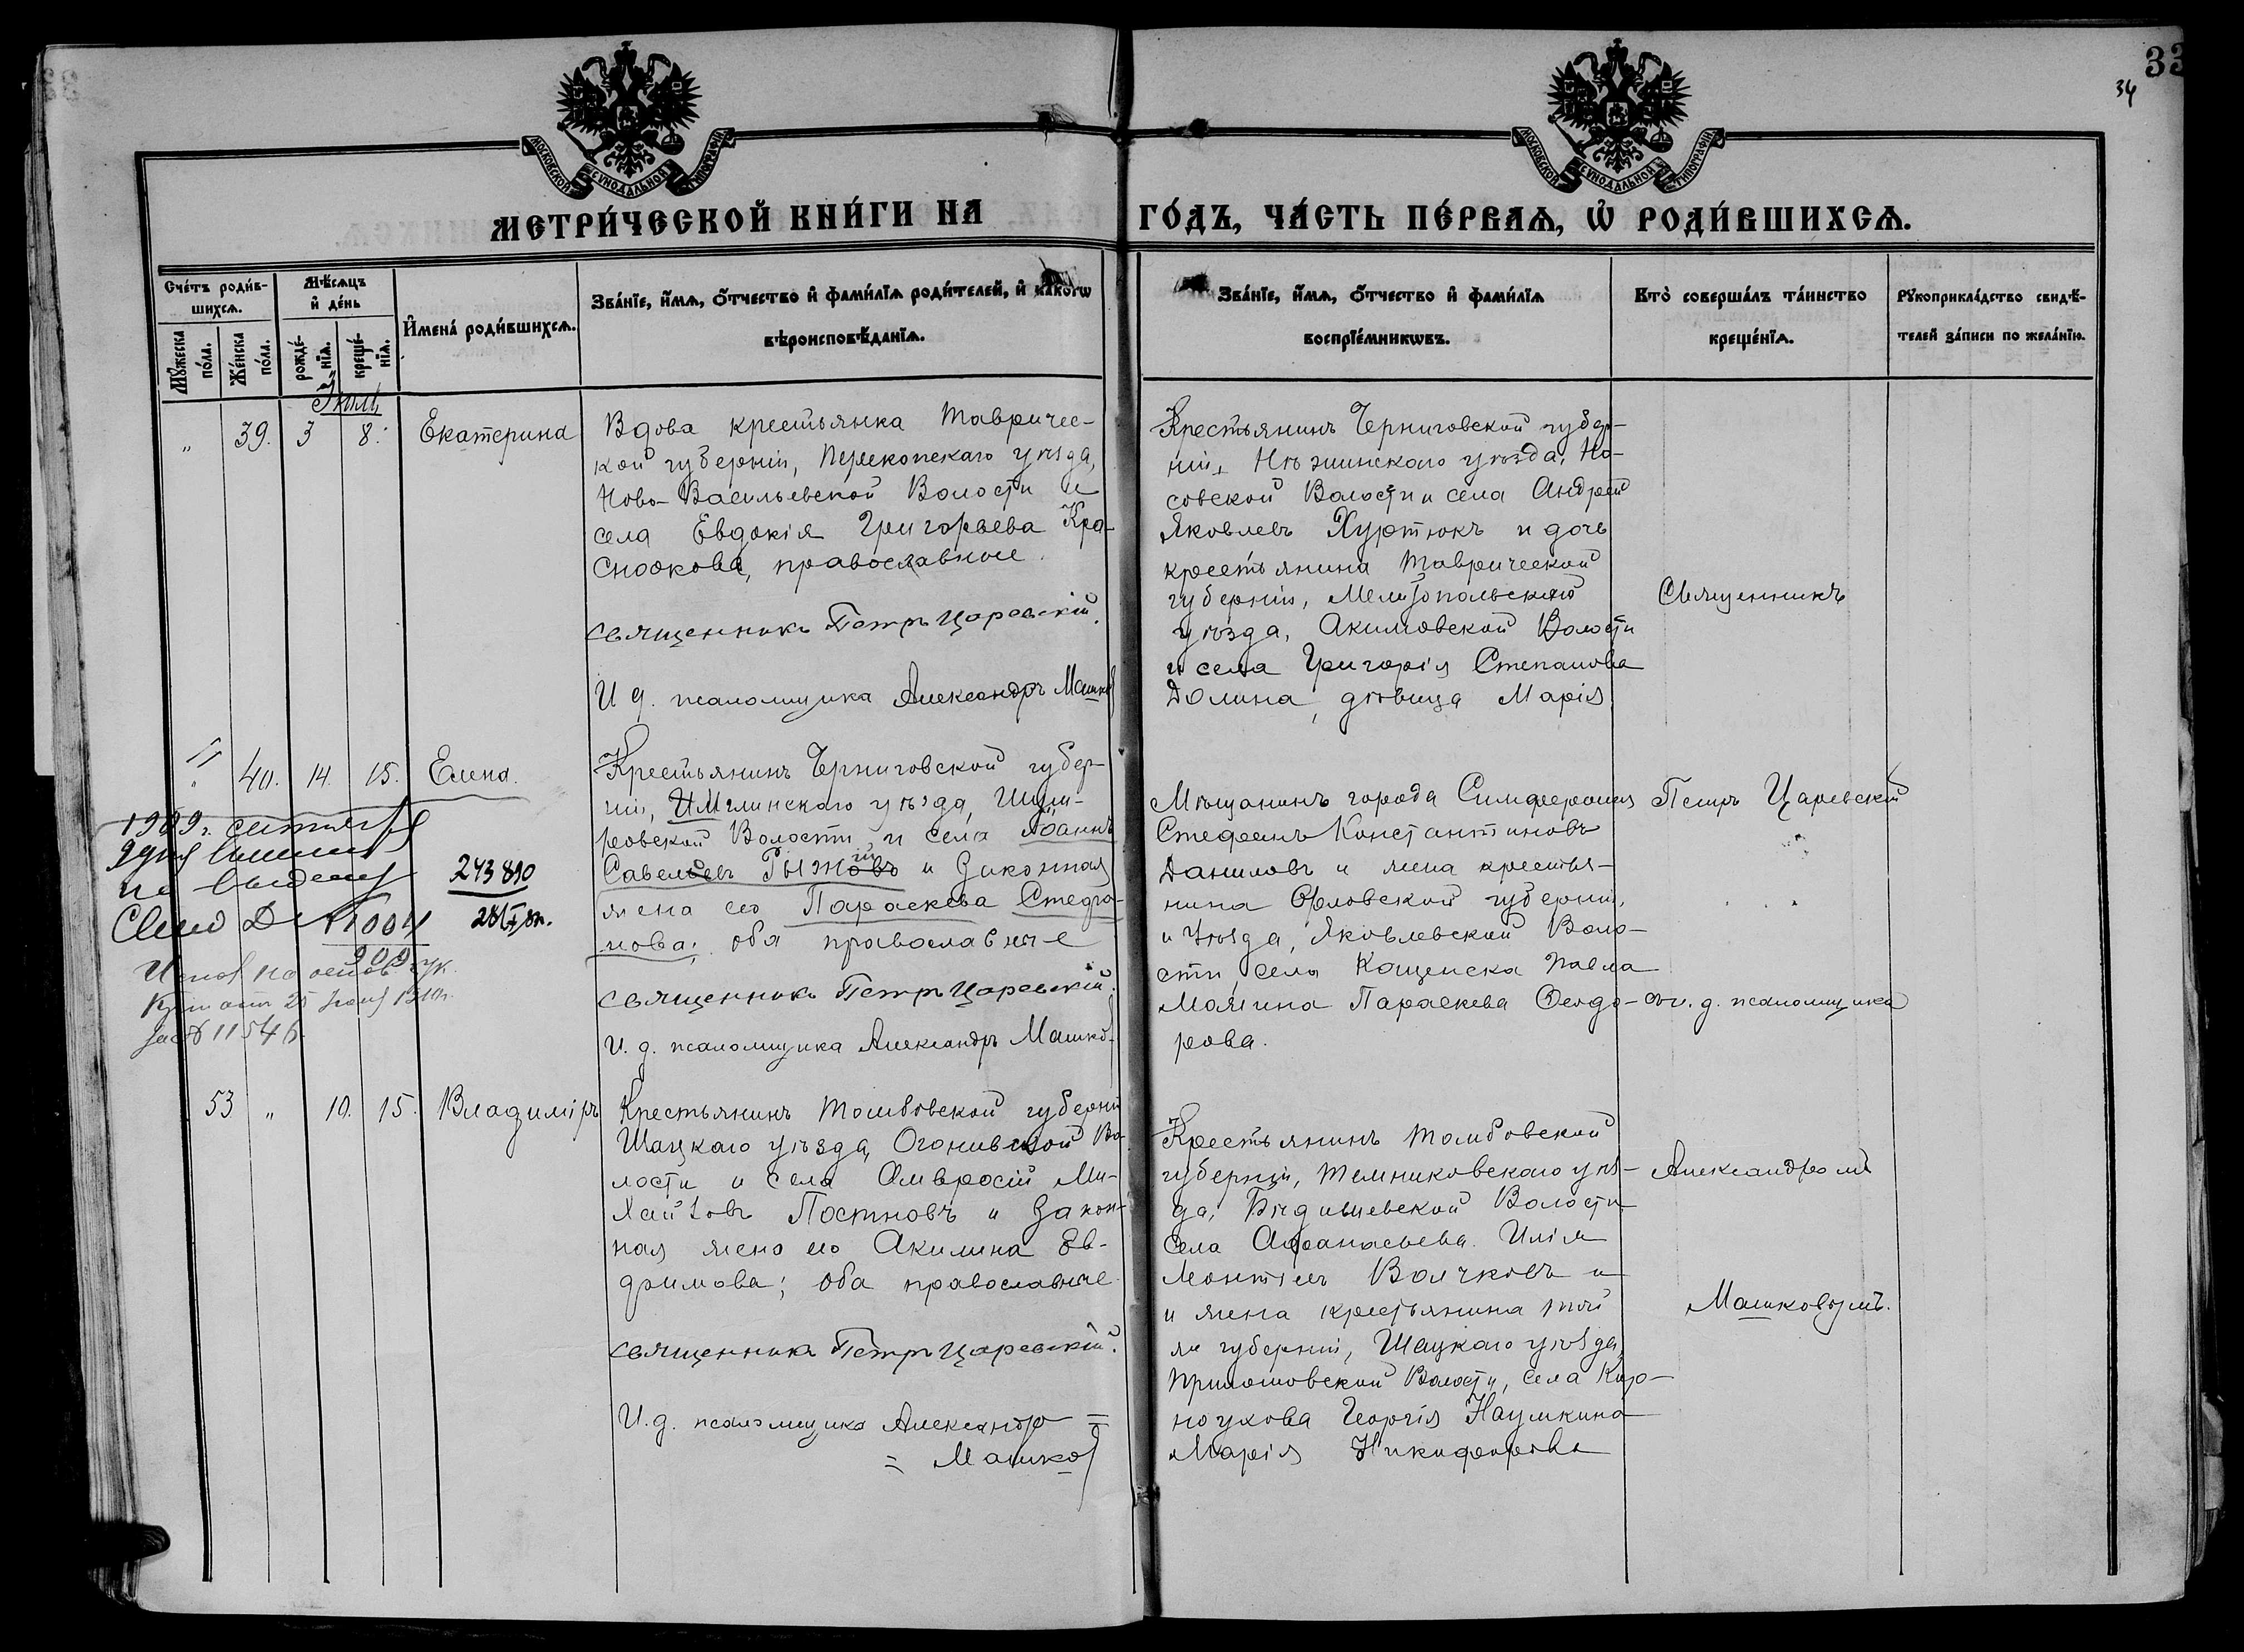 33
34
МОСКОВСКОЙ СѴНОДАЛЬНОЙ ТИПОГРАФІИ
МОСКОВСКОЙ СѴНОДАЛЬНОЙ ТИПОГРАФІИ
МЕТРИ́ЧЕСКОЙ КНИ́ГИ НА
ГО́ДЪ, ЧА́СТЬ ПЕ́РВАѦ, Ѡ҆ РОДИ́ВШИХСѦ.
Сче́тъ роди́в-
шихсѧ.
Мꙋ́жеска по́ла.
Же́нска по́ла.
Мѣ́сѧцъ
и҆ де́нь
рожде́-
нїѧ.
креще́-
нїѧ.
И҆мена̀ роди́вшихсѧ.
Зва́нїе, и҆́мѧ, ѻ҆́тчество и҆ фами́лїѧ роди́телей, и҆ како́гѡ
вѣроисповѣ́данїѧ.
Зва́нїе, и҆́мѧ, ѻ҆́тчество и҆ фами́лїѧ
воспрїе́мникѡвъ.
Кто̀ соверша́лъ та́инство
креще́нїѧ.
Рꙋкоприкла́дство свидѣ́-
телей за́писи по жела́нїю.
Іюль
„ 39. 3 8. Екатерина
Вдова крестьянка Тавричес-
кой губерніи, Перекопскаго уѣзда,
Ново-Васильевской Волости и
села Евдокія Григорьева Кра-
снокова, православное.
священникъ Петръ Царевскій.
И д. псаломщика Александръ Машков
Крестьянинъ Черниговской губер-
ніи, Нѣжинскаго уѣзда, Но-
совской Волости и села Андрей
Яковлевъ Хуртюкъ и дочь
крестьянина Таврической
губерніи, Мелитопольскаго
уѣзда, Акимовской Волости
и села Григорія Степанова
Долина, дѣвица Марія
Священникъ
„ 40. 14. 15. Елена.
Крестьянинъ Черниговской губер-
ніи, Мглинскаго уѣзда, Шуми-
ровской Волости и села Іоаннъ
Савельевъ Рыжовъ и законная
жена его Параскева Стефа-
нова; оба православные
священникъ Петръ Царевскій.
И. д. псаломщика Александръ Машков
Мѣщанинъ города Симферополя
Стефанъ Константиновъ
Даниловъ и жена крестья-
нина Орловской губерніи,
и уѣзда, Яковлевской Воло-
сти, села Кащенска Павла
Малгина Параскева Ѳеодо-
рова.
Петръ Царевскій
съ и. д. псаломщика
1909 г. сентября
243 810
№ 1004
909
53 „ 10. 15. Владиміръ
Крестьянинъ Тамбовской губерніи
Шацкаго уѣзда, Огонивской Во-
лости и села Амвросій Ми-
хайловъ Постновъ и закон-
ная жена его Акилина Ев-
фимова; оба православные
священникъ Петръ Царевскій.
И. д. псаломщика Александръ =
= Машков
Крестьянинъ Тамбовской
губерніи, Темниковскаго уѣз-
да, Бѣдишевской Волости
села Афанасьева Илія
Леонтіевъ Волчковъ и
и жена крестьянина той
же губерніи, Шацкаго уѣзда,
Волости, села Кор-
ноухова Георгія Наумкина
Марія Никифорова
Александромъ
Машковымъ.